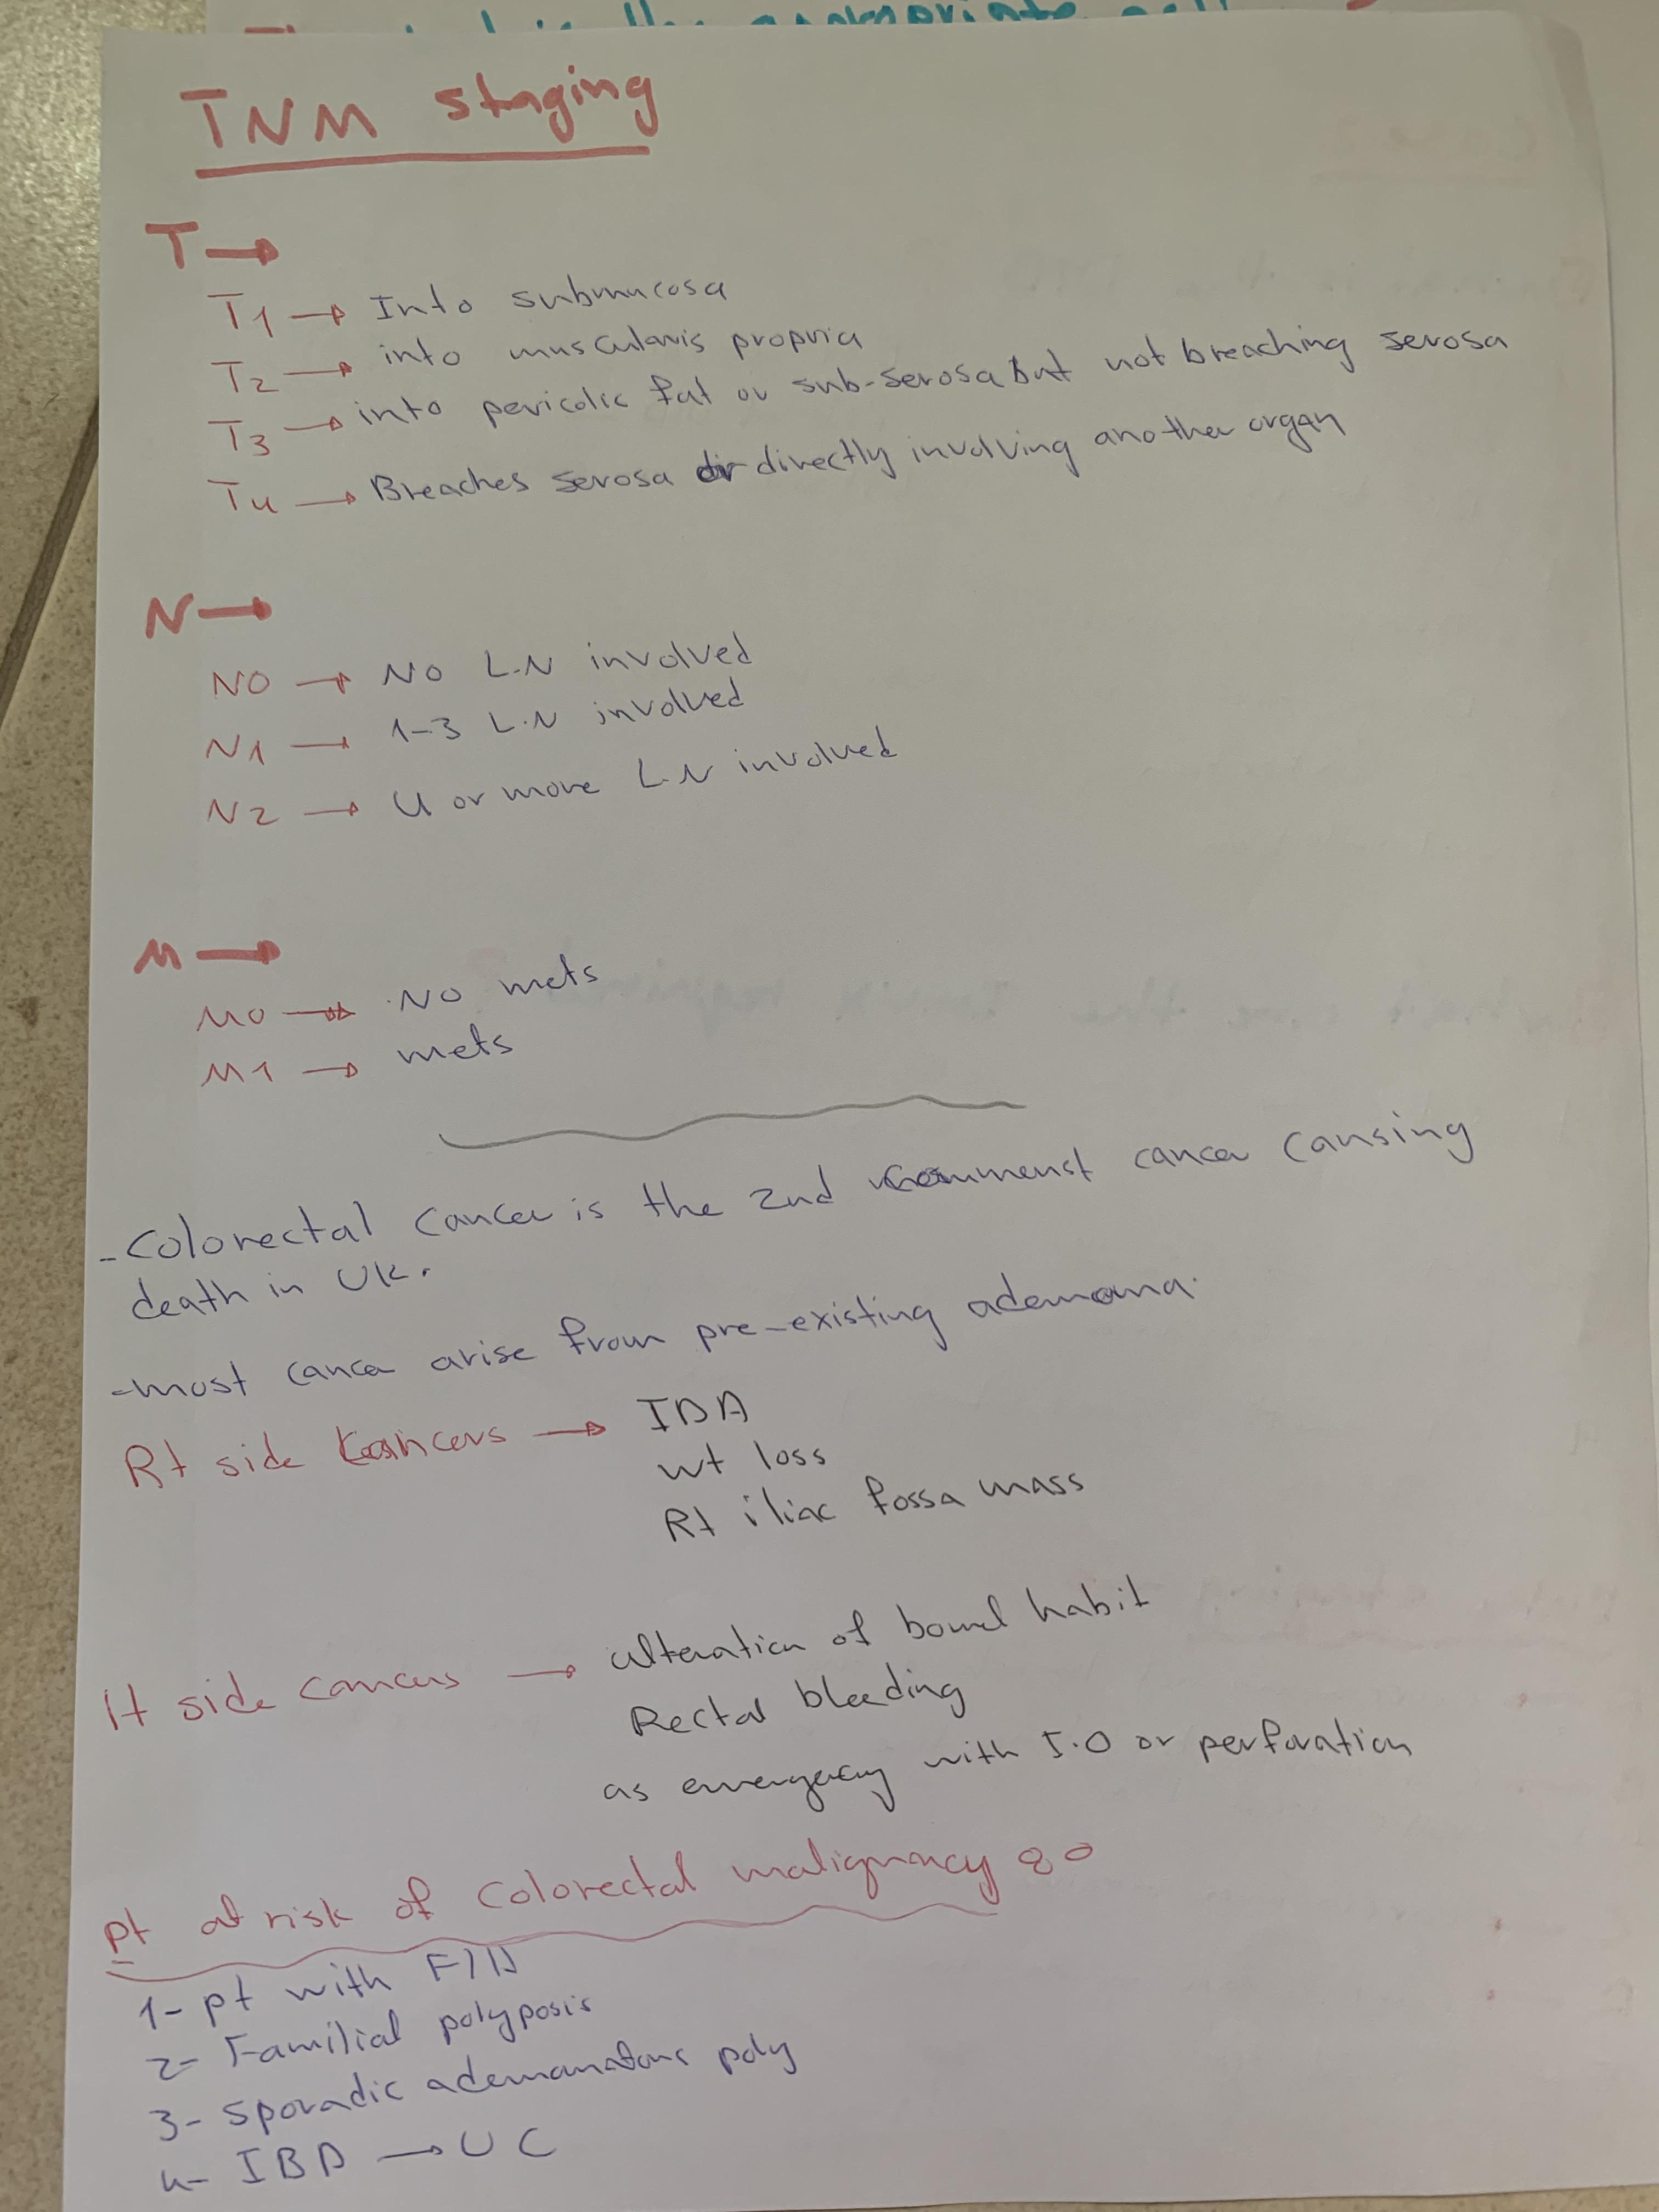 TNM staging
T →
T1 → Into submucosa
T2 → into muscularis propria
T3 → into pericolic fat or sub-serosa but not breaching serosa
T4 → Breaches serosa or directly involving another organ
N →
N0 → No L.N involved
N1 → 1-3 L.N involved
N2 → 4 or more L.N involved
M →
M0 → No mets
M1 → mets
- Colorectal cancer is the 2nd commenst cancer causing
death in UK.
- most cancer arise from pre-existing ademoma.
Rt side cancers → IDA
wt loss
Rt iliac fossa mass
lt side cancers → alteration of bowel habit
Rectal bleeding
as emergency with I.O or perforation
pt at risk of colorectal malignancy
1- pt with
2- Familial polyposis
3- sporadic ademomatous poly
4- IBD → UC